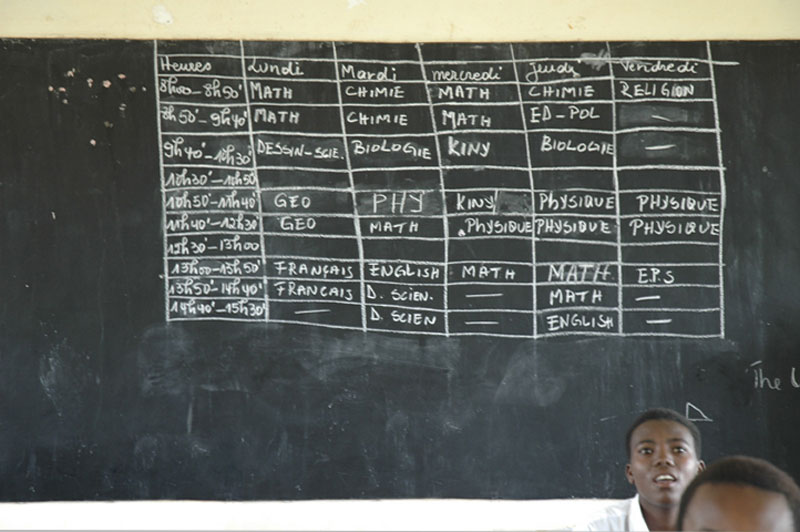 Heures Lundi Mardi mercredi Jeudi Vendredi
8h00-8h50' MATH CHIMIE MATH CHIMIE RELIGION
8h50'-9h40' MATH CHIMIE MATH ED-POL —
9h40'-10h30' DESSIN-SCIE. BIOLOGIE KINY BIOLOGIE —
10h30'-10h50
10h50'-11h40' GEO PHY KINY PHYSIQUE PHYSIQUE
11h40'-12h30 GEO MATH PHYSIQUE PHYSIQUE PHYSIQUE
12h30'-13h00
13h00-13h50' FRANÇAIS ENGLISH MATH MATH E.P.S
13h50'-14h40' FRANCAIS D. SCIEN. — MATH —
14h40'-15h30' — D. SCIEN — ENGLISH —
The